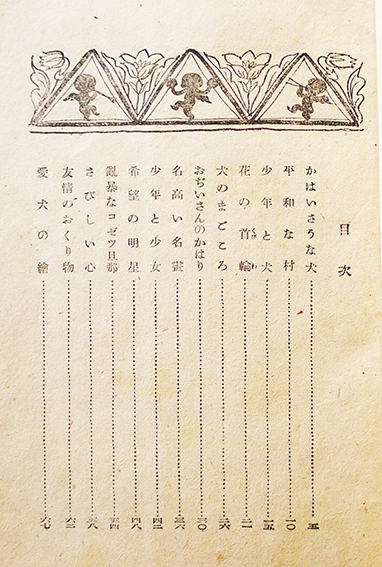 目次
かはいさうな犬……五
平和な村……一〇
少年と犬……一五
花の首輪……二一
犬のまごころ……二六
おぢいさんのかはり……三〇
名高い名畫……三六
少年と少女……
希望の明星……四八
亂暴なコゼツ旦那……五四
さびしい心……五八
友情のおくり物……
愛犬の繪……六七